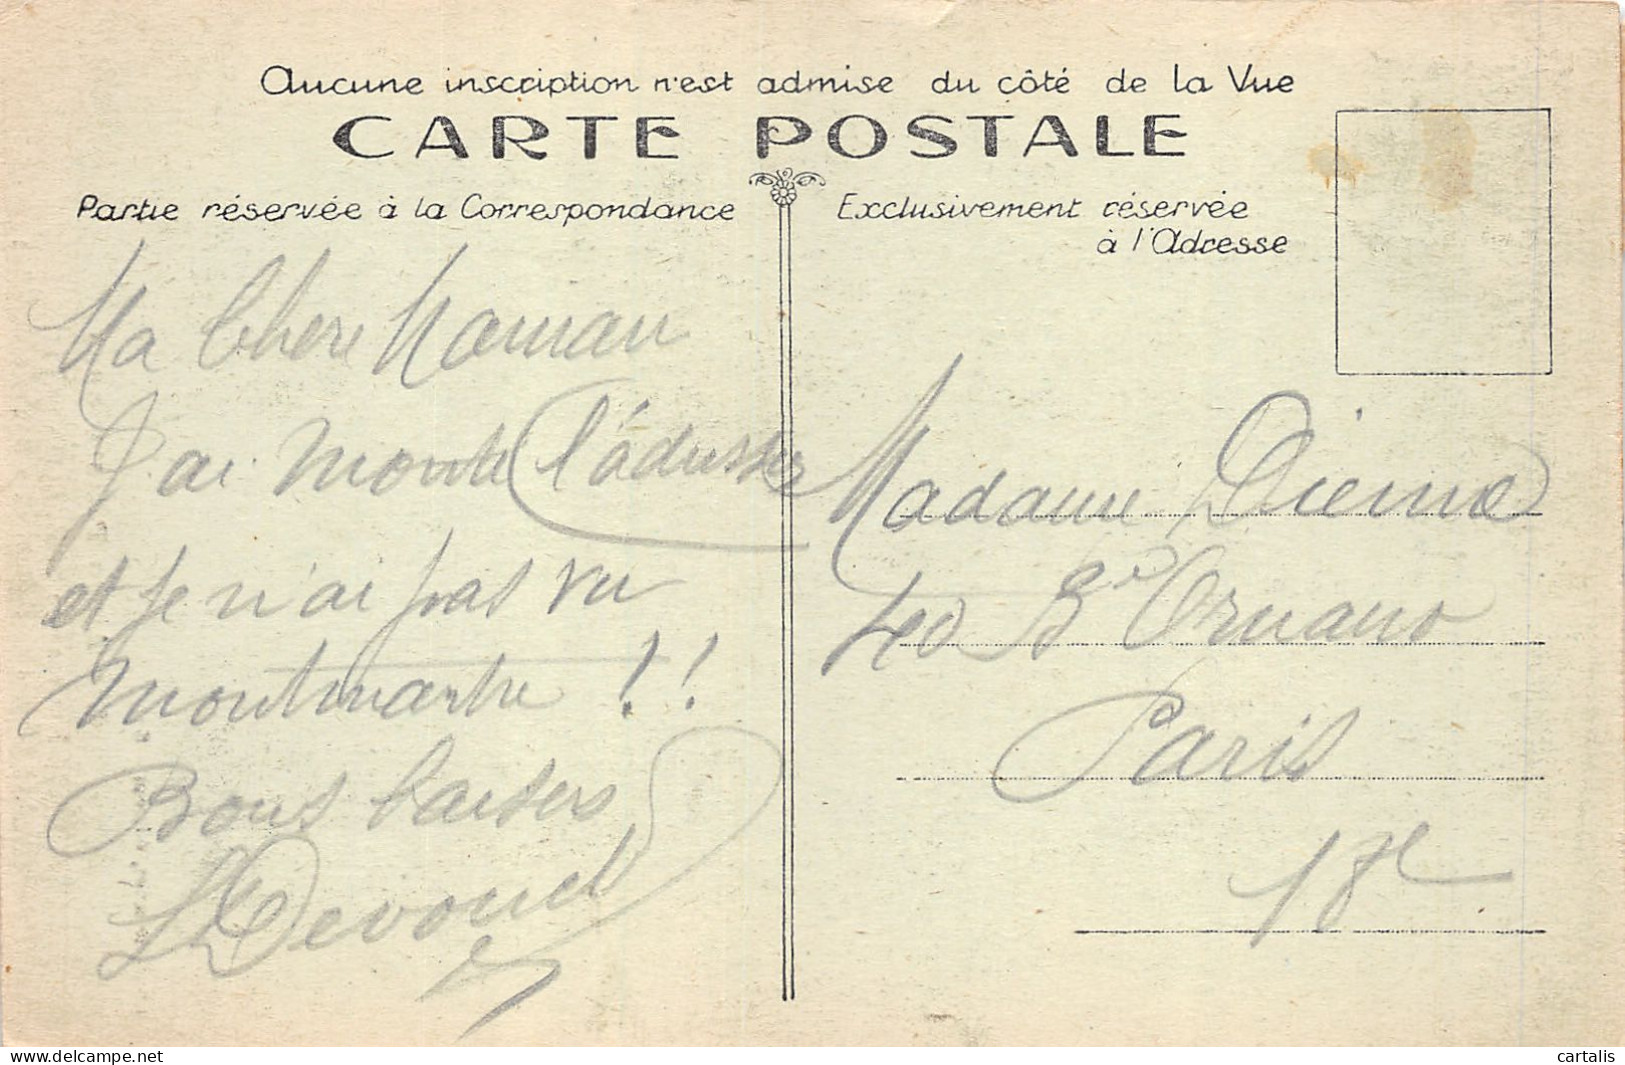 Aucune inscription n'est admise du côté de la Vue
CARTE POSTALE
Partie réservée à la Correspondance
Exclusivement réservée
à l'Adresse
Ma Chere Maman
J'ai monté
et je n'ai pas vu
Montmartre !!
Bons baisers
Madame
40 Bd Ornano
Paris
18e
cartalis